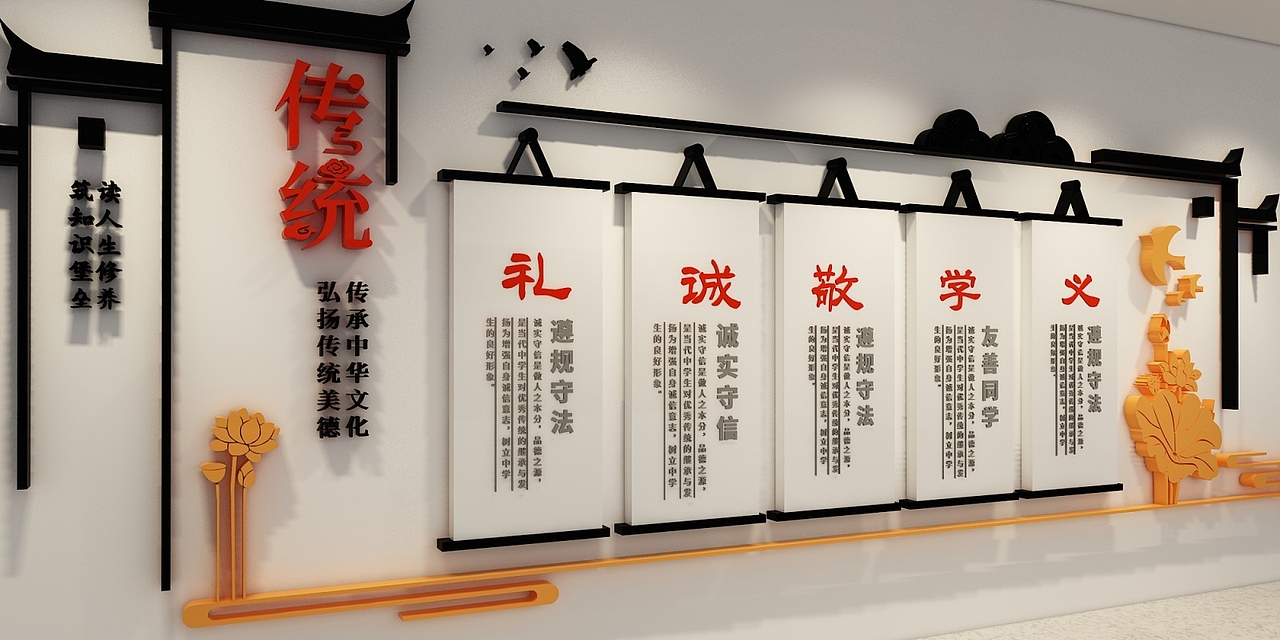 读人生修养
筑知识堡垒
传统
传承中华文化
弘扬传统美德
礼
遵规守法
诚实守信是做人之本分，品德之源，
是当代中学生对优秀传统的继承与发
扬为增强自身诚信意志，树立中学
生的良好形象。
诚
诚实守信
诚实守信是做人之本分，品德之源，
是当代中学生对优秀传统的继承与发
扬为增强自身诚信意志，树立中学
生的良好形象。
敬
遵规守法
诚实守信是做人之本分，品德之源，
是当代中学生对优秀传统的继承与发
扬为增强自身诚信意志，树立中学
生的良好形象。
学
友善同学
诚实守信是做人之本分，品德之源，
是当代中学生对优秀传统的继承与发
扬为增强自身诚信意志，树立中学
生的良好形象。
义
遵规守法
诚实守信是做人之本分，品德之源，
是当代中学生对优秀传统的继承与发
扬为增强自身诚信意志，树立中学
生的良好形象。